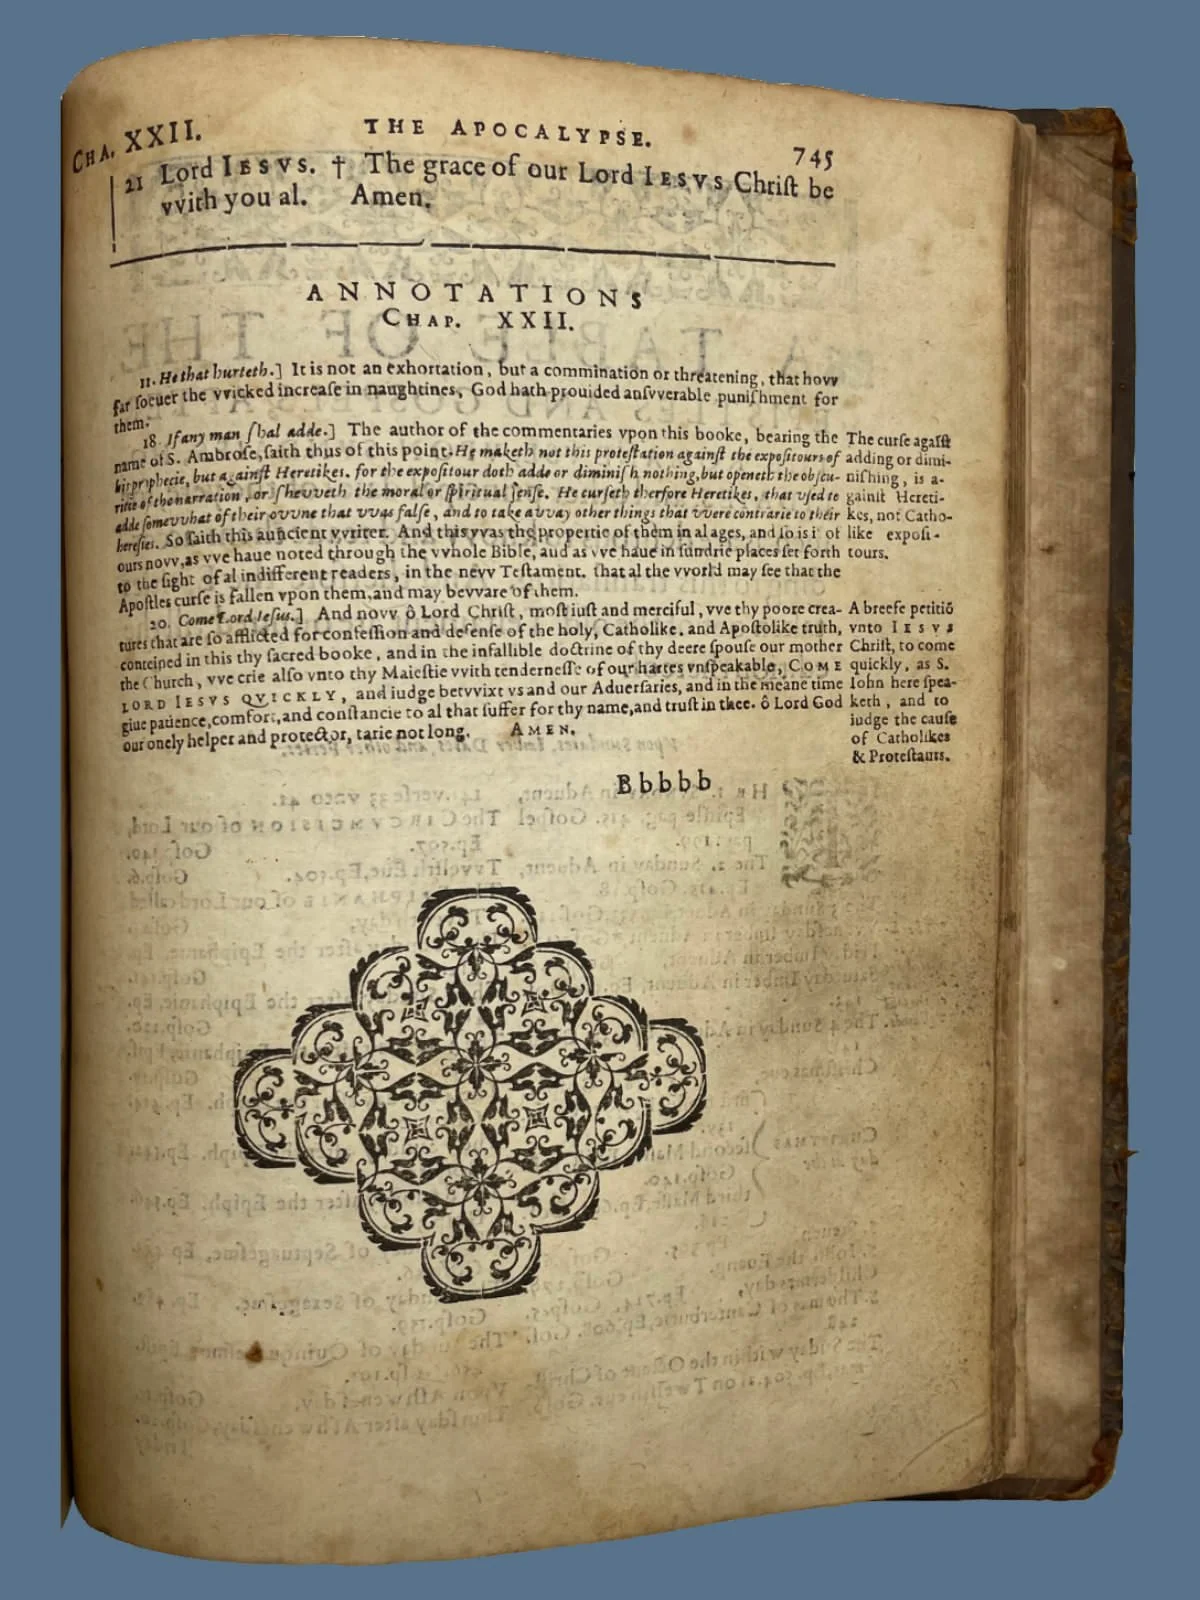 CHA. XXII. THE APOCALYPSE. 745
21 Lord IESVS. † The grace of our Lord IESVS Chriſt be
vvith you al. Amen.
ANNOTATIONS
CHAP. XXII.
11. He that hurteth.] It is not an exhortation, but a commination or threatening, that hovv
far ſoeuer the vvicked increaſe in naughtines, God hath prouided anſvverable puniſhment for
them.
18. If any man ſhal adde.] The author of the commentaries vpon this booke, bearing the
name of S. Ambroſe, ſaith thus of this point. He maketh not this proteſtation againſt the expoſitours of
his prophecie, but againſt Heretikes. for the expoſitour doth adde or diminiſh nothing, but openeth the obſcu-
ritie of the narration, or ſhevveth the moral or ſpiritual ſenſe. He curſeth therfore Heretikes, that vſed to
adde ſomevvhat of their ovvne that vvas falſe, and to take avvay other things that vvere contrarie to their
hereſies. So ſaith this auncient vvriter. And this vvas the propertie of them in al ages, and ſo is i of
ours novv, as vve haue noted through the vvhole Bible, aud as vve haue in ſundrie places ſet forth
to the ſight of al indifferent readers, in the nevv Teſtament. that al the vvorld may ſee that the
Apoſtles curſe is fallen vpon them, and may bevvare of them.
The curſe agaſſt
adding or dimi-
niſhing, is a-
gainſt Hereti-
kes, not Catho-
like expoſi-
tours.
20. Come Lord Ieſus.] And novv ô Lord Chriſt, moſt iuſt and merciful, vve thy poore crea-
tures that are ſo afflicted for confeſſion and defenſe of the holy, Catholike, and Apoſtolike truth,
conteined in this thy ſacred booke, and in the infallible doctrine of thy deere ſpouſe our mother
the Church, vve crie alſo vnto thy Maieſtie vvith tenderneſſe of our hartes vnſpeakable, COME
LORD IESVS QVICKLY, and iudge betvvixt vs and our Aduerſaries, and in the meane time
giue patience, comfort, and conſtancie to al that ſuffer for thy name, and truſt in thee. ô Lord God
our onely helper and protector, tarie not long. AMEN.
A breefe petitiō
vnto IESVS
Chriſt, to come
quickly, as S.
Iohn here ſpea-
keth, and to
iudge the cauſe
of Catholikes
& Proteſtants.
Bbbbb